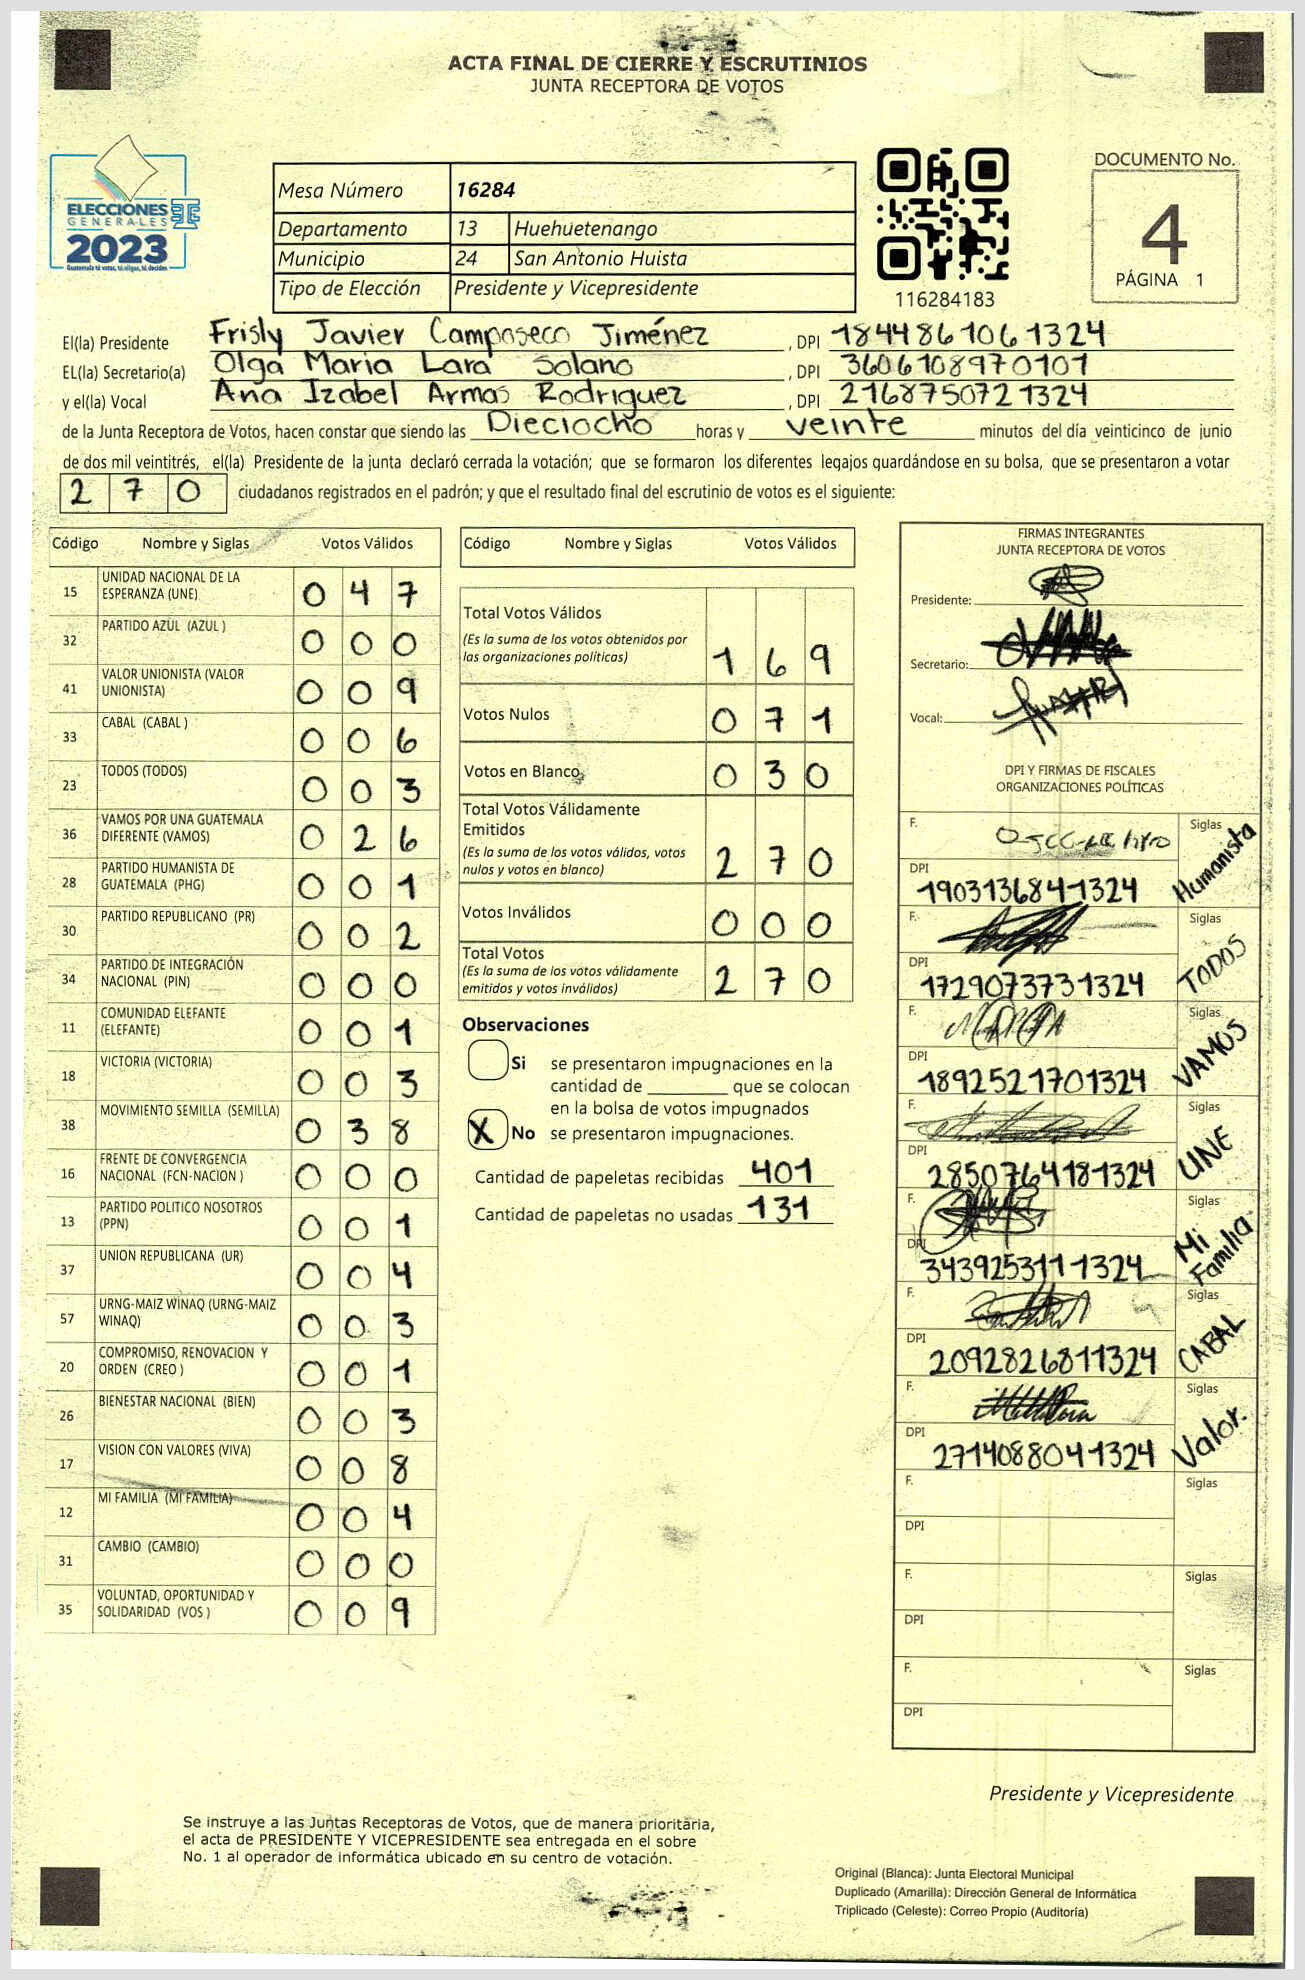 ACTA FINAL DE CIERRE Y ESCRUTINIOS
JUNTA RECEPTORA DE VOTOS
ELECCIONES
GENERALES
2023
Guatemala tú votas, tú eliges, tú decides
Mesa Número 16284
Departamento 13 Huehuetenango
Municipio 24 San Antonio Huista
Tipo de Elección Presidente y Vicepresidente
116284183
DOCUMENTO No.
4
PÁGINA 1
El(la) Presidente Frisly Javier Camposeco Jiménez, DPI 1844861061324
EL(la) Secretario(a) Olga Maria Lara Solano, DPI 3606108970101
y el(la) Vocal Ana Izabel Armas Rodriguez, DPI 2168750721324
de la Junta Receptora de Votos, hacen constar que siendo las Dieciocho horas y veinte minutos del día veinticinco de junio
de dos mil veintitrés, el(la) Presidente de la junta declaró cerrada la votación; que se formaron los diferentes legajos guardándose en su bolsa, que se presentaron a votar
270 ciudadanos registrados en el padrón; y que el resultado final del escrutinio de votos es el siguiente:
Código Nombre y Siglas Votos Válidos
15 UNIDAD NACIONAL DE LA
ESPERANZA (UNE) 0 4 7
32 PARTIDO AZUL (AZUL ) 0 0 0
41 VALOR UNIONISTA (VALOR
UNIONISTA) 0 0 9
33 CABAL (CABAL ) 0 0 6
23 TODOS (TODOS) 0 0 3
36 VAMOS POR UNA GUATEMALA
DIFERENTE (VAMOS) 0 2 6
28 PARTIDO HUMANISTA DE
GUATEMALA (PHG) 0 0 1
30 PARTIDO REPUBLICANO (PR) 0 0 2
34 PARTIDO DE INTEGRACIÓN
NACIONAL (PIN) 0 0 0
11 COMUNIDAD ELEFANTE
(ELEFANTE) 0 0 1
18 VICTORIA (VICTORIA) 0 0 3
38 MOVIMIENTO SEMILLA (SEMILLA) 0 3 8
16 FRENTE DE CONVERGENCIA
NACIONAL (FCN-NACION ) 0 0 0
13 PARTIDO POLITICO NOSOTROS
(PPN) 0 0 1
37 UNION REPUBLICANA (UR) 0 0 4
57 URNG-MAIZ WINAQ (URNG-MAIZ
WINAQ) 0 0 3
20 COMPROMISO, RENOVACION Y
ORDEN (CREO ) 0 0 1
26 BIENESTAR NACIONAL (BIEN) 0 0 3
17 VISION CON VALORES (VIVA) 0 0 8
12 MI FAMILIA (MI FAMILIA) 0 0 4
31 CAMBIO (CAMBIO) 0 0 0
35 VOLUNTAD, OPORTUNIDAD Y
SOLIDARIDAD (VOS ) 0 0 9
Código Nombre y Siglas Votos Válidos
Total Votos Válidos
(Es la suma de los votos obtenidos por
las organizaciones políticas) 1 6 9
Votos Nulos 0 7 1
Votos en Blanco 0 3 0
Total Votos Válidamente
Emitidos
(Es la suma de los votos válidos, votos
nulos y votos en blanco) 2 7 0
Votos Inválidos 0 0 0
Total Votos
(Es la suma de los votos válidamente
emitidos y votos inválidos) 2 7 0
Observaciones
Si se presentaron impugnaciones en la
cantidad de ________ que se colocan
en la bolsa de votos impugnados
X No se presentaron impugnaciones.
Cantidad de papeletas recibidas 401
Cantidad de papeletas no usadas 131
FIRMAS INTEGRANTES
JUNTA RECEPTORA DE VOTOS
Presidente:
Secretario:
Vocal:
DPI Y FIRMAS DE FISCALES
ORGANIZACIONES POLÍTICAS
F. Siglas Humanista
DPI 1903136841324
F. Siglas TODOS
DPI 1729073731324
F. Siglas VAMOS
DPI 1892521701324
F. Siglas UNE
DPI 2850764181324
F. Siglas Mi Familia
DPI 3439253111324
F. Siglas CABAL
DPI 2092826811324
F. Siglas Valor.
DPI 2714088041324
F. Siglas
DPI
F. Siglas
DPI
F. Siglas
DPI
Presidente y Vicepresidente
Se instruye a las Juntas Receptoras de Votos, que de manera prioritaria,
el acta de PRESIDENTE Y VICEPRESIDENTE sea entregada en el sobre
No. 1 al operador de informática ubicado en su centro de votación.
Original (Blanca): Junta Electoral Municipal
Duplicado (Amarilla): Dirección General de Informática
Triplicado (Celeste): Correo Propio (Auditoría)